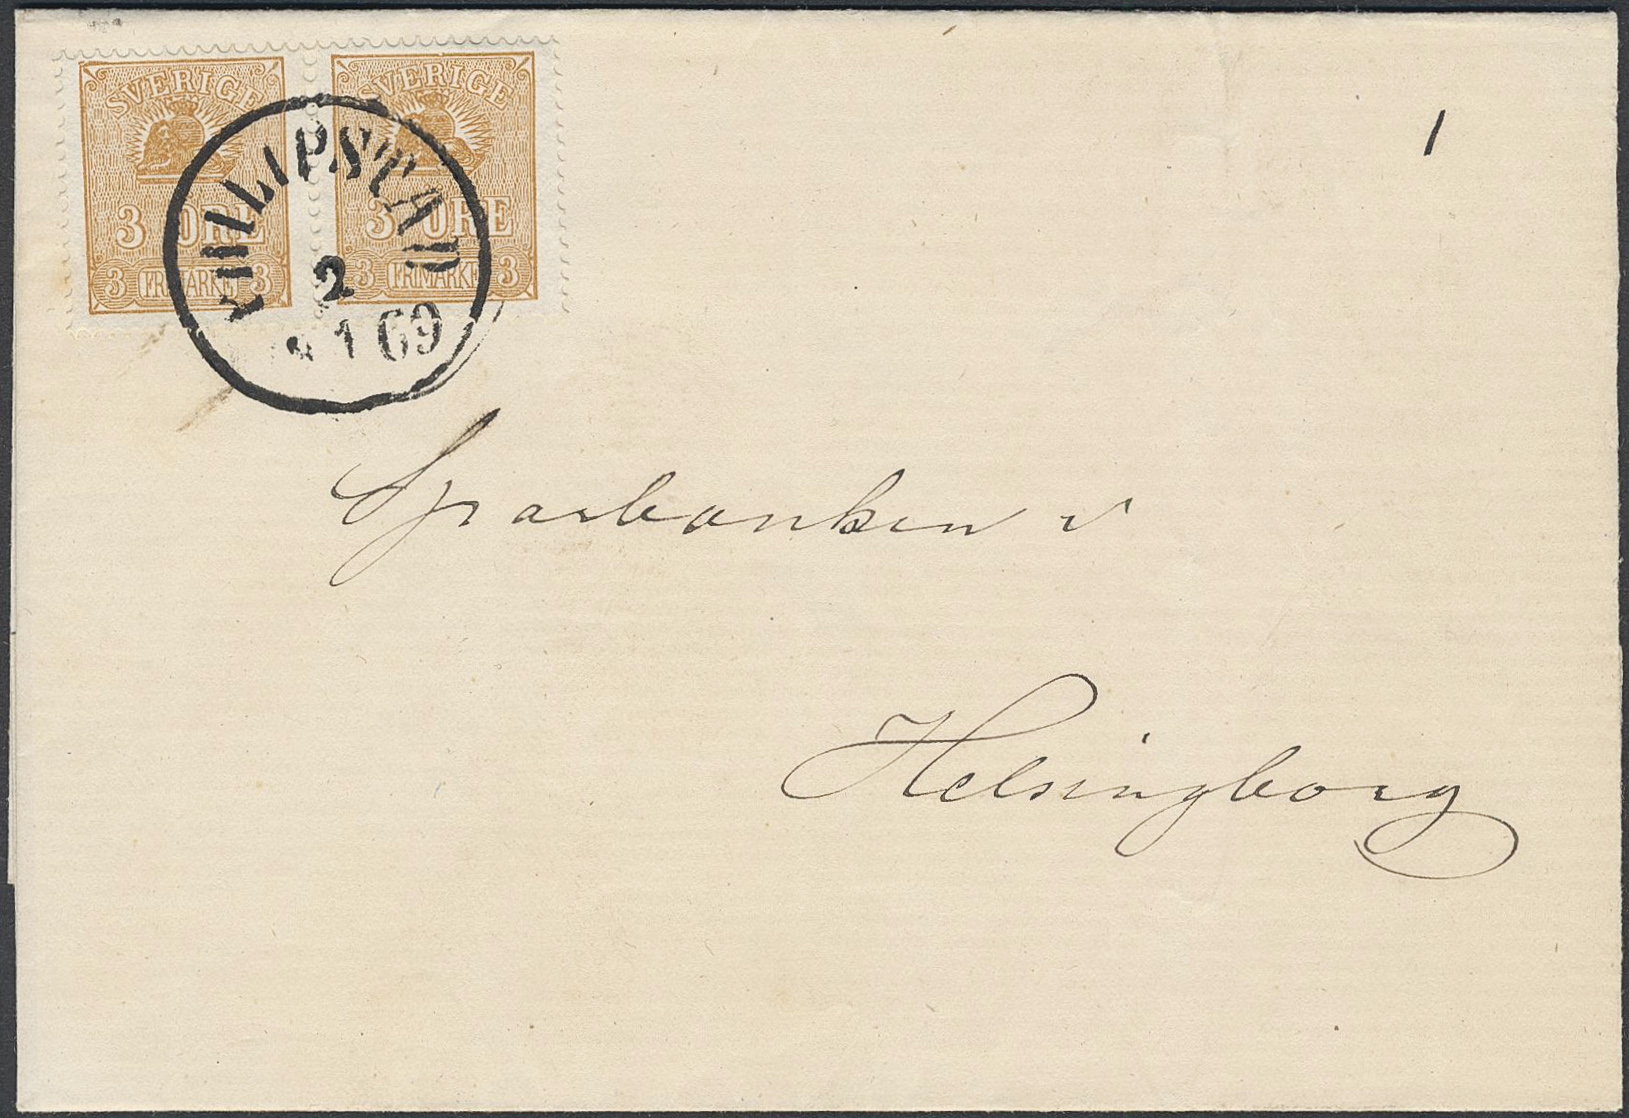 SVERIGE SVERIGE
3 ÖRE 3 ÖRE
3 FRIMÄRKE 3 3 FRIMÄRKE 3
PHILIPSTAD
2
1 69
1
Sparbanken i
Helsingborg